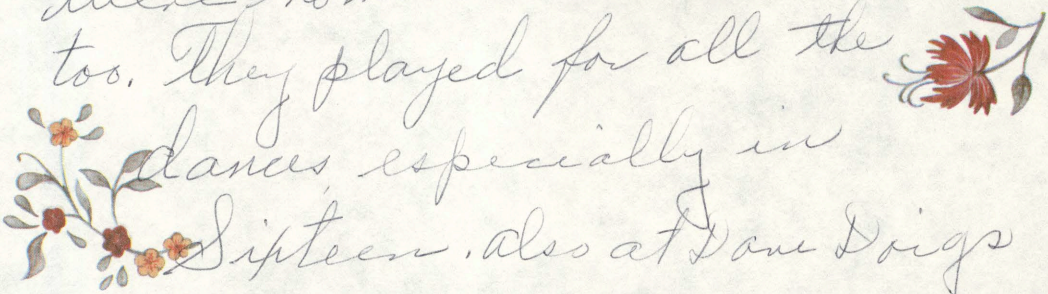 too. They played for all the
dances especially in
Sixteen. also at Dave Doigs